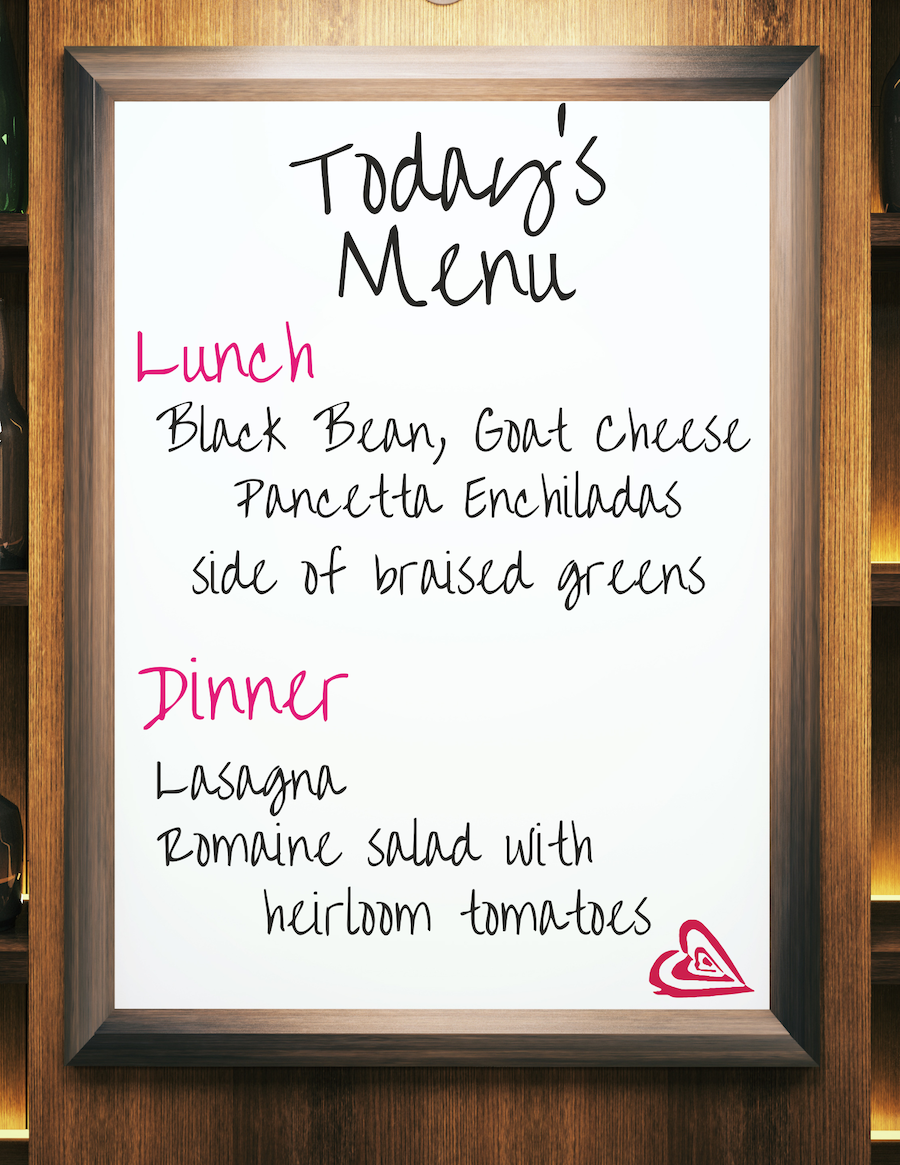 Today's
Menu
Lunch
Black Bean, Goat Cheese
Pancetta Enchiladas
side of braised greens
Dinner
Lasagna
Romaine salad with
heirloom tomatoes